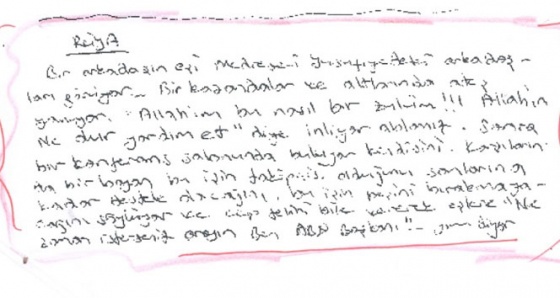 Rüya
Bir arkadaşın eşi Medrese-i Yusufiyedeki arkadaş-
ları görüyor.. Bir kazandalar ve altlarında ateş
yanıyor. "Allahim bu nasıl bir zulüm!!! Allahım
Ne olur yardım et" diye inliyor ablamız. Sonra
bir konferans salonunda buluyor kendisini. Karşıların
da bir bayan bu işin takipçisi olduğunu sonlarına
kadar destek olacağını, bu işin peşini bırakmaya-
cağını söylüyor ve cep telini bile vererek "Ne
zaman isterseniz arayın Ben ABD Başkanı".. diyor